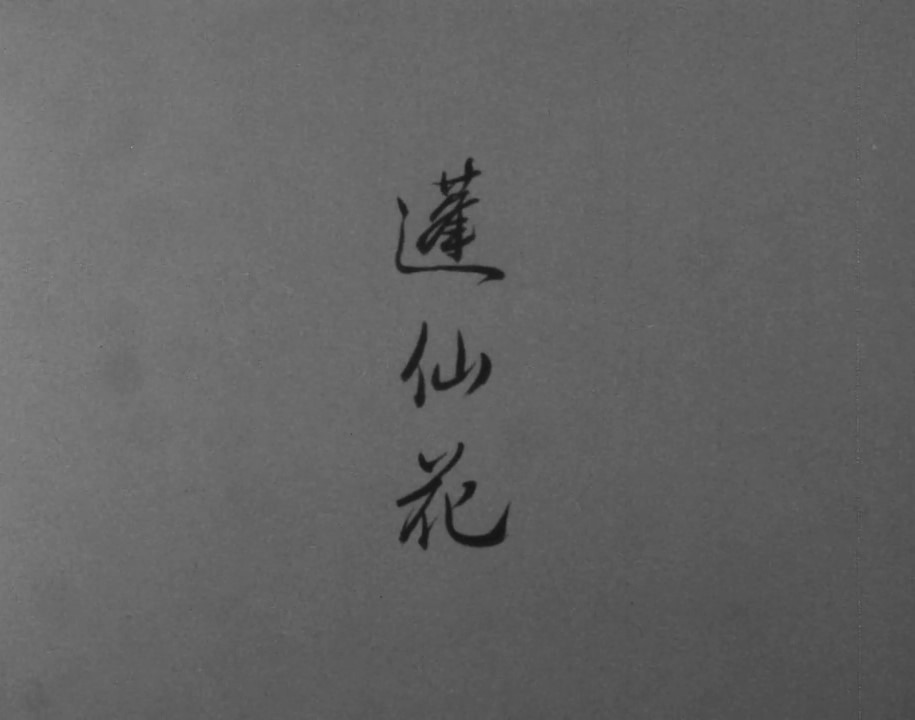 蓬仙花